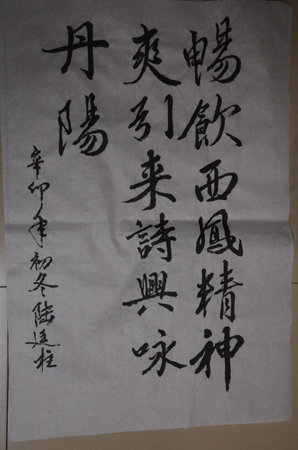 暢飲西鳳精神
爽引来詩興咏
丹陽
辛卯年初冬陸建柱